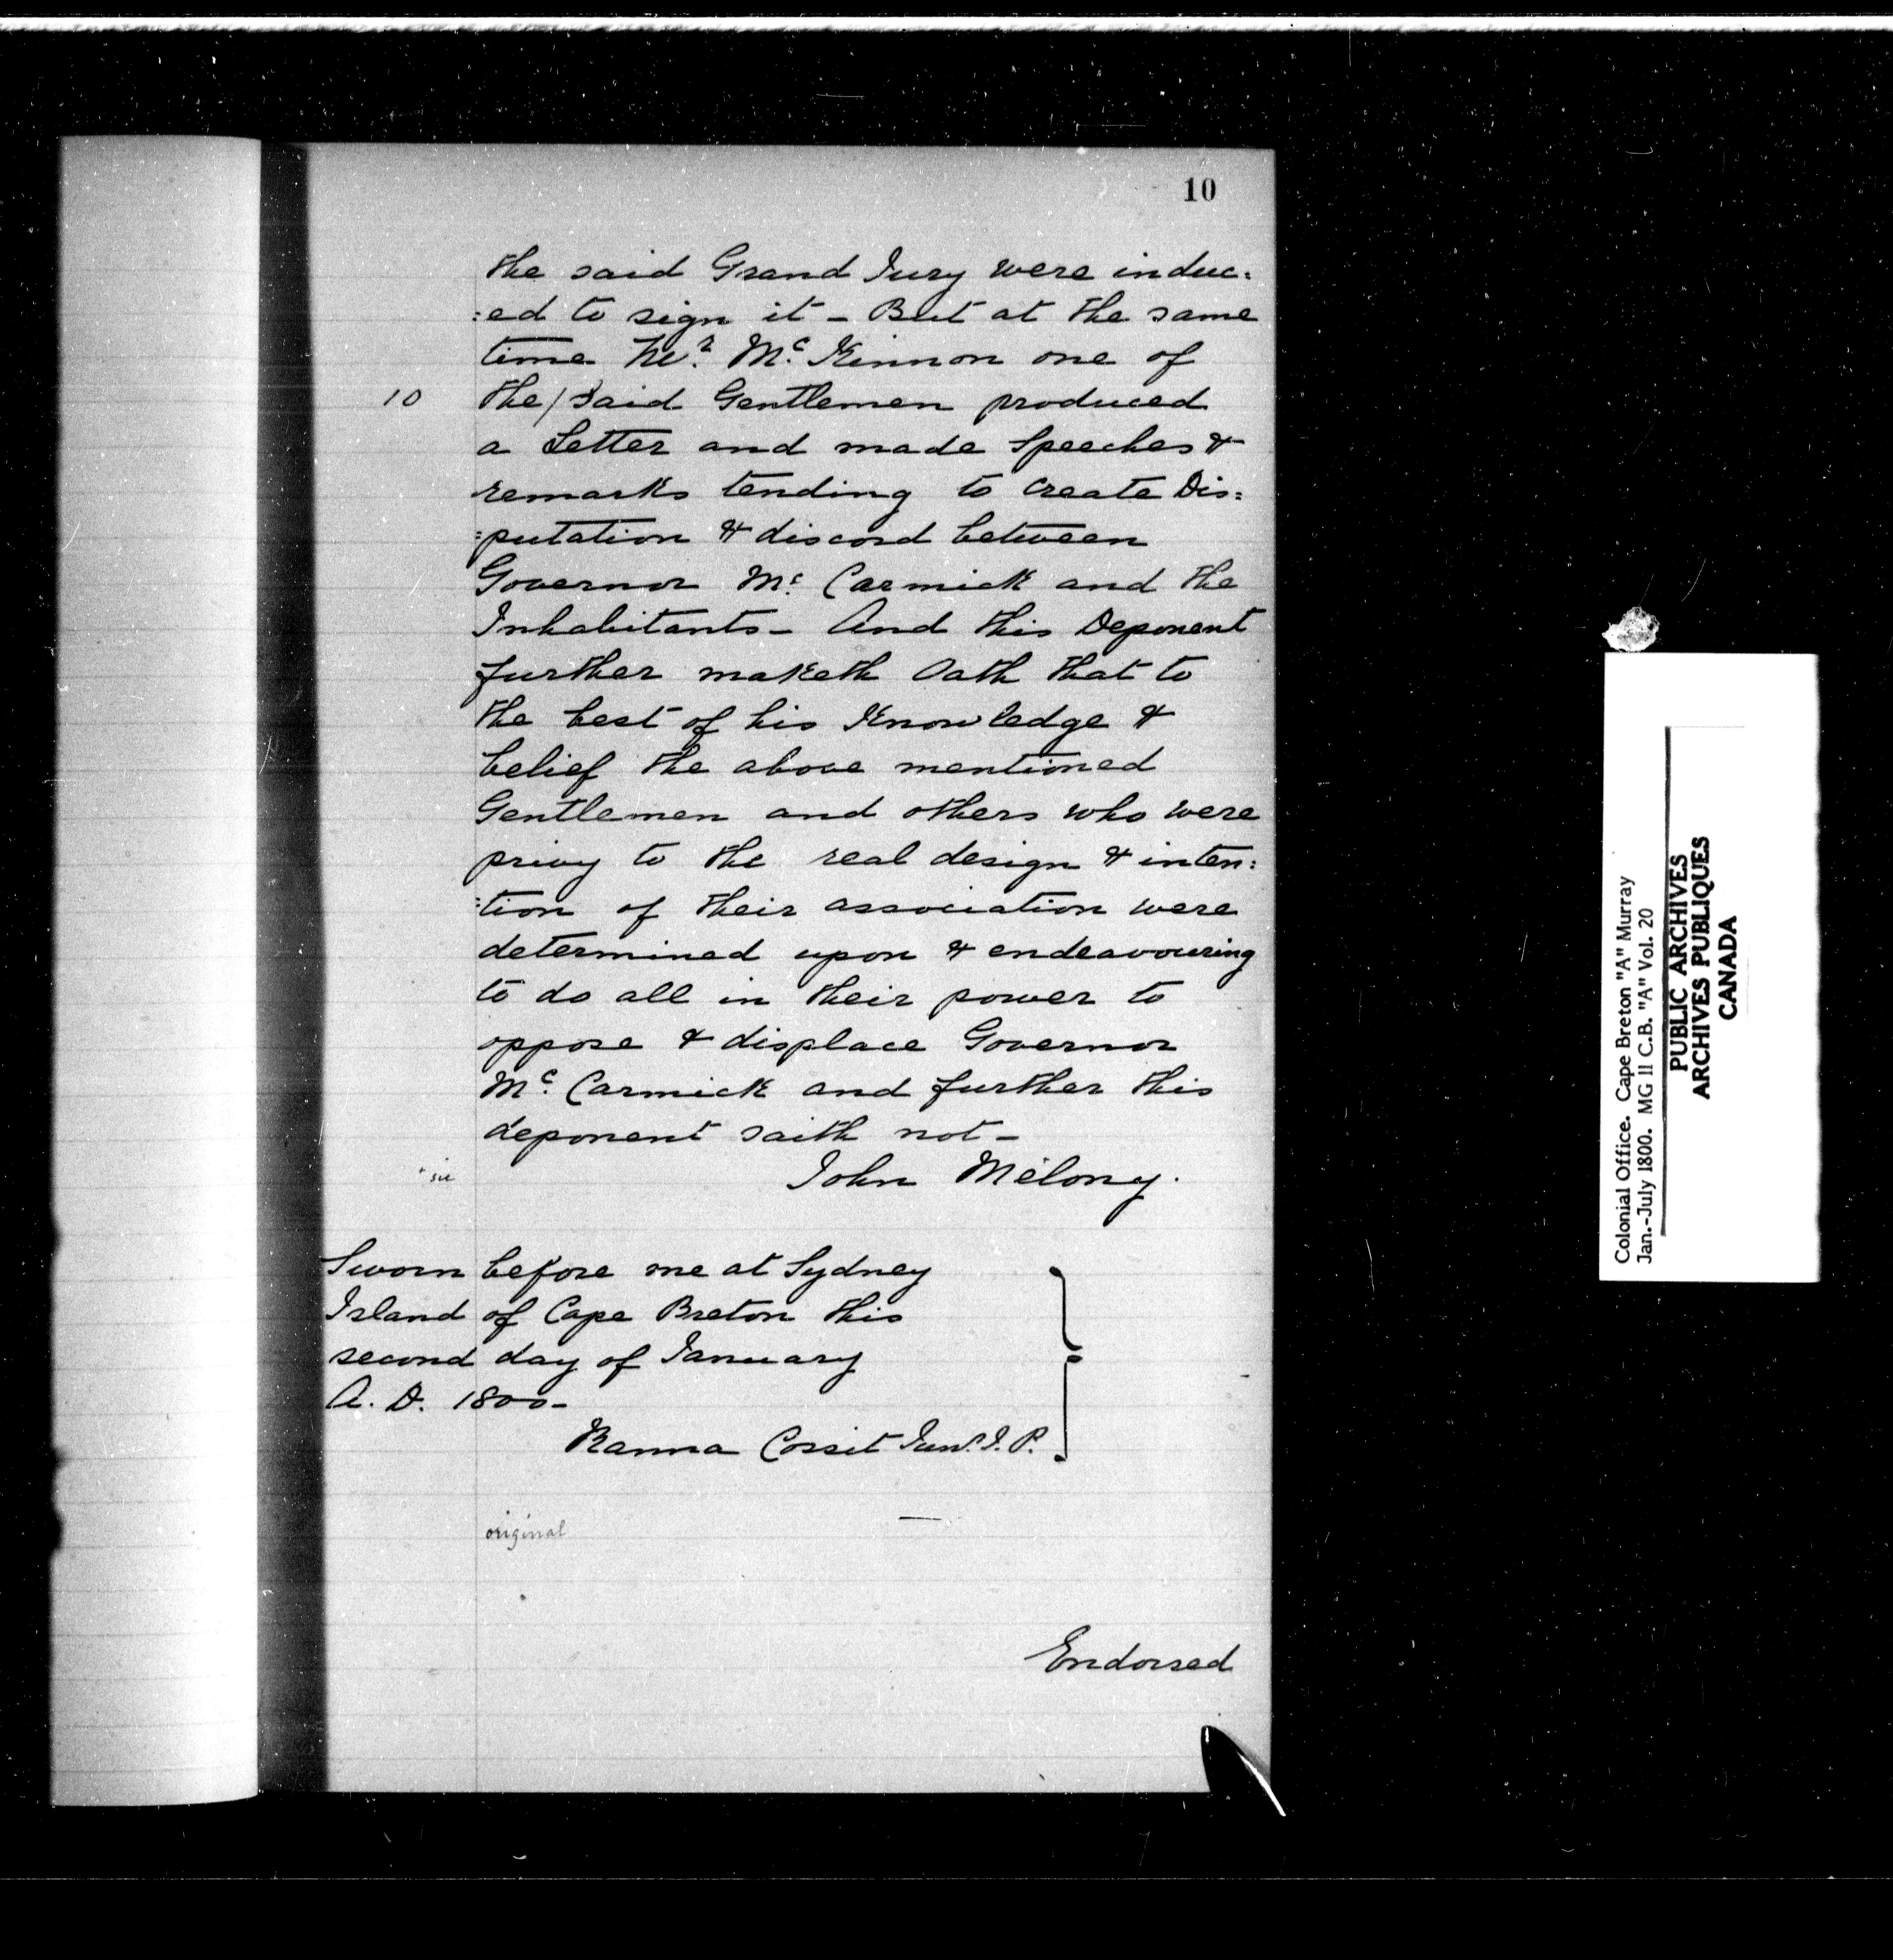 10
the said Grand Jury were induc=
=ed to sign it - But at the same
time Mr. Mc. Kinnon one of
10 the / said Gentlemen produced
a Letter and made Speeches &
remarks tending to create Dis=
=putation & discord between
Governor Mc. Carmick and the
Inhabitants - And this Deponent
further maketh Oath that to
the best of his Knowledge &
belief the above mentioned
Gentlemen and others who were
privy to the real design & inten=
=tion of their association were
determined upon & endeavouring
to do all in their power to
oppose & displace Governor
Mc. Carmick and further this
deponent saith not -
+ sic John Melony.
Sworn before me at Sydney
Island of Cape Breton this
second day of January
A. D. 1800 -
Ranna Cossit Junr. J. P.
original
Endorsed
Colonial Office. Cape Breton "A" Murray
Jan.-July 1800. MG 11 C.B. "A" Vol. 20
PUBLIC ARCHIVES
ARCHIVES PUBLIQUES
CANADA